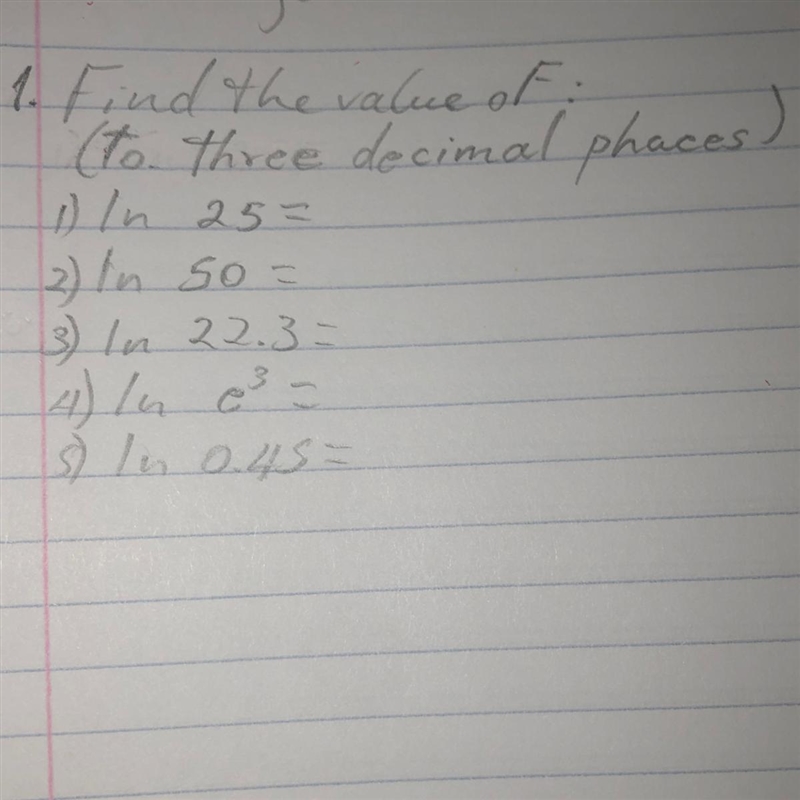 1. Find the value of:
(to three decimal phaces)
1) ln 25 =
2) ln 50 =
3) ln 22.3 =
4) ln e³ =
5) ln 0.45 =